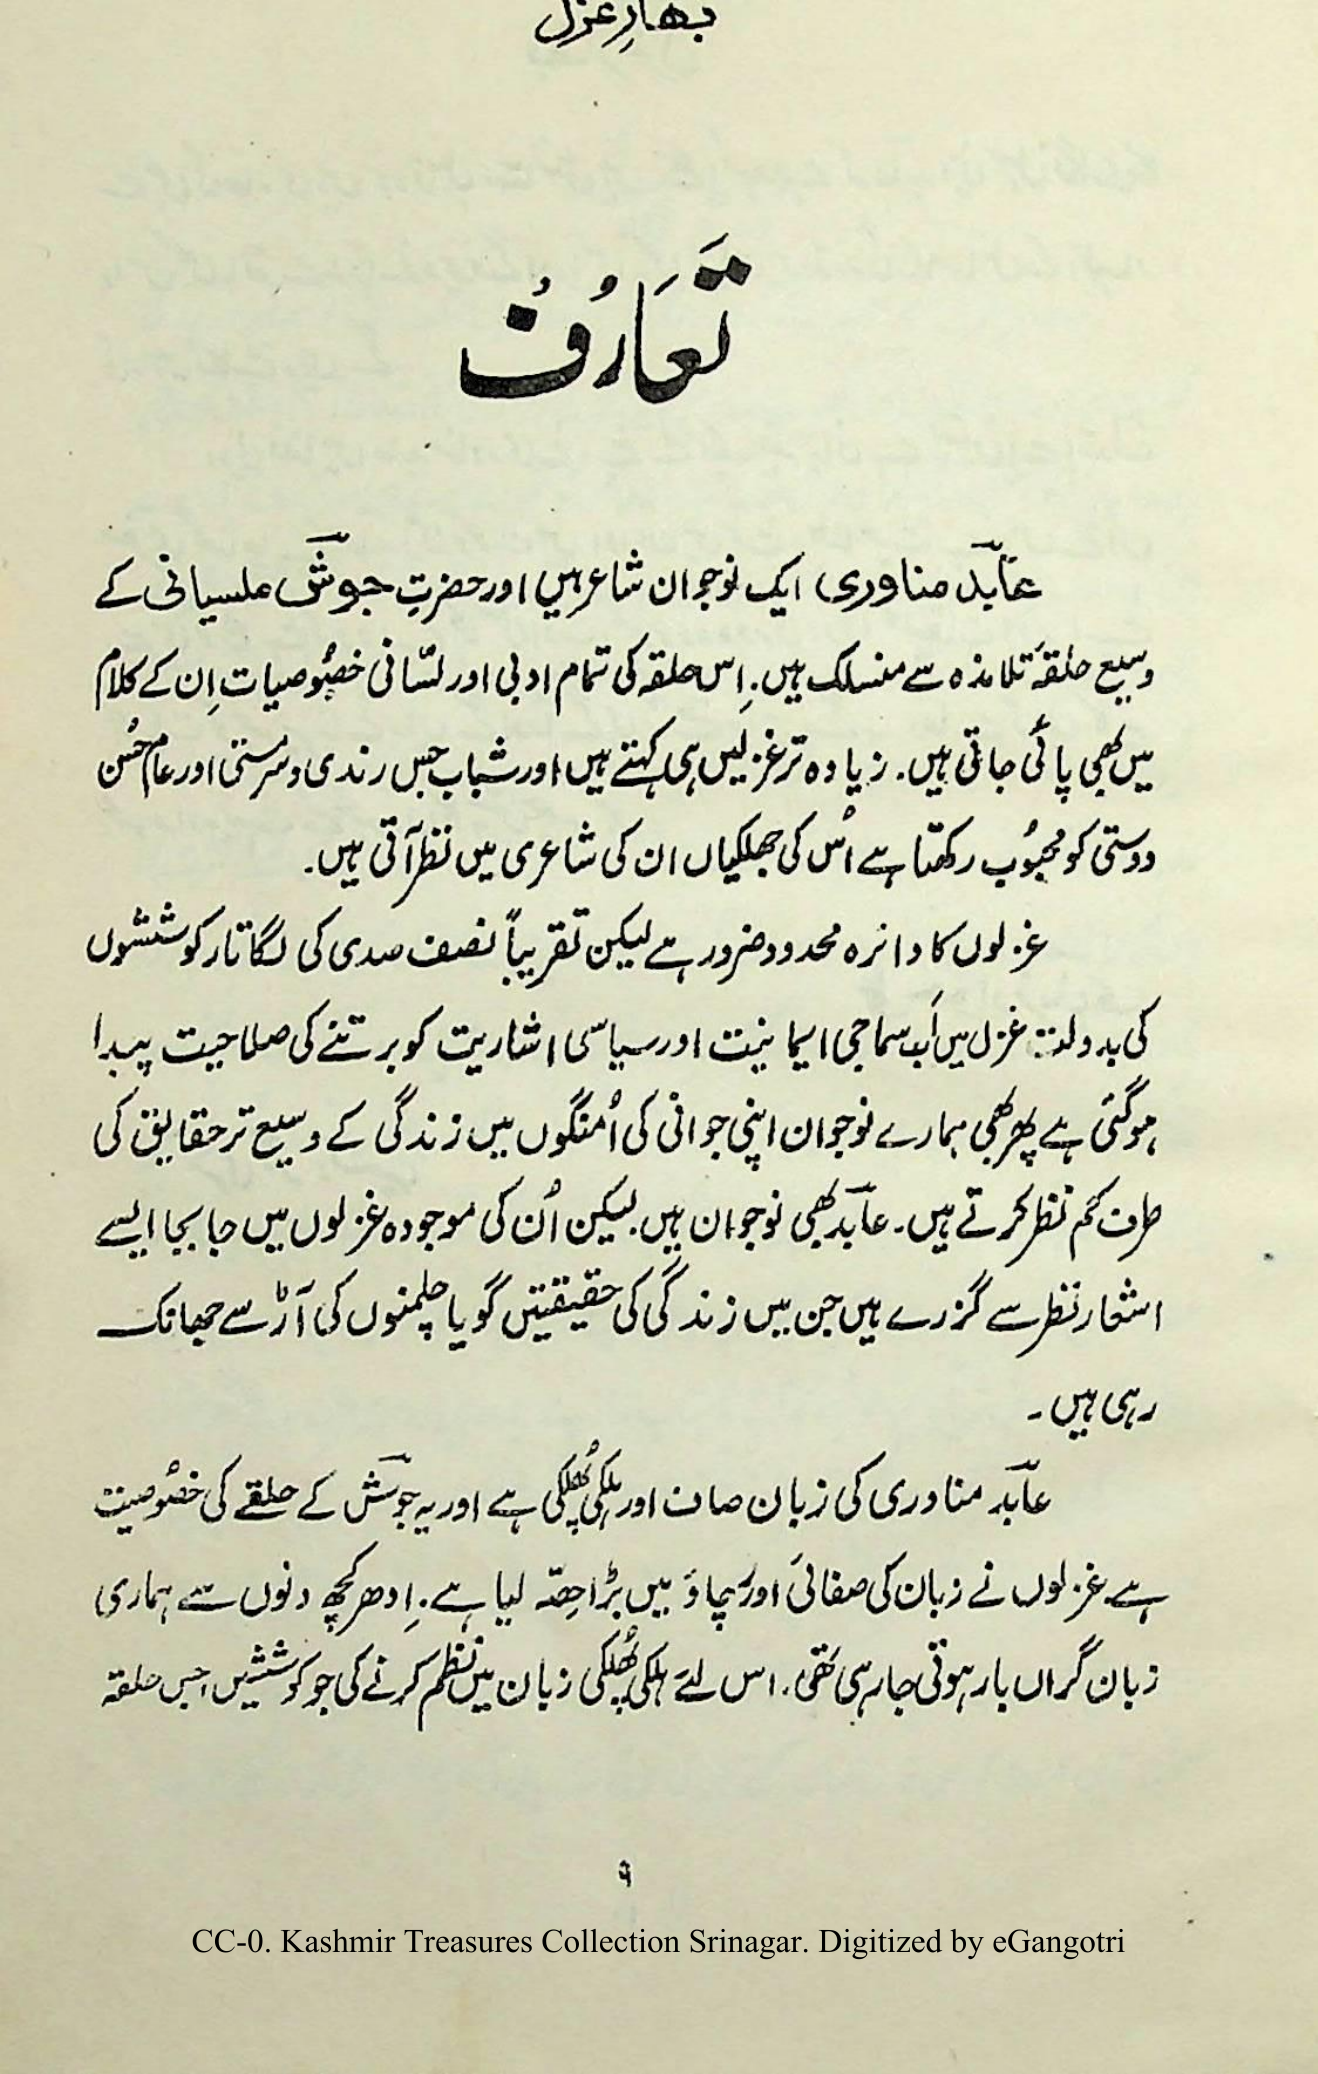 بہارِ غزل
تَعَارُف
عابدؔ مناوری ایک نوجوان شاعر ہیں اور حضرتِ جوشؔ ملسیانی کے
وسیع حلقۂ تلامذہ سے منسلک ہیں۔ اِس حلقہ کی تمام ادبی اور لسّانی خصُوصیات اِن کے کلام
میں بھی پائی جاتی ہیں۔ زیادہ تر غزلیں ہی کہتے ہیں اور شباب جس رندی و سرمستی اور عام حُسن
دوستی کو محبُوب رکھتا ہے اُس کی جھلکیاں ان کی شاعری میں نظر آتی ہیں۔
غزلوں کا دائرہ محدود ضرور ہے لیکن تقریباً نصف صدی کی لگاتار کوششوں
کی بدولت غزل میں اَب سماجی ایمائیت اور سیاسی اشاریت کو برتنے کی صلاحیت پیدا
ہوگئی ہے پھر بھی ہمارے نوجوان اپنی جوانی کی اُمنگوں میں زندگی کے وسیع تر حقایق کی
طرف کم نظر کرتے ہیں۔ عابدؔ بھی نوجوان ہیں۔ لیکن اُن کی موجودہ غزلوں میں جابجا ایسے
اشعار نظر سے گزرے ہیں جن میں زندگی کی حقیقتیں گویا چلمنوں کی آڑ سے جھانک
رہی ہیں۔
عابدؔ مناوری کی زبان صاف اور ہلکی پُھلکی ہے اور یہ جوشؔ کے حلقے کی خصُوصیت
ہے غزلوں نے زبان کی صفائی اور رچاؤ میں بڑا حِصّہ لیا ہے۔ اِدھر کچھ دنوں سے ہماری
زبان گراں بار ہوتی جارہی تھی۔ اس لئے ہلکی پُھلکی زبان میں نظم کرنے کی جو کوششیں جس حلقہ
۹
CC-0. Kashmir Treasures Collection Srinagar. Digitized by eGangotri